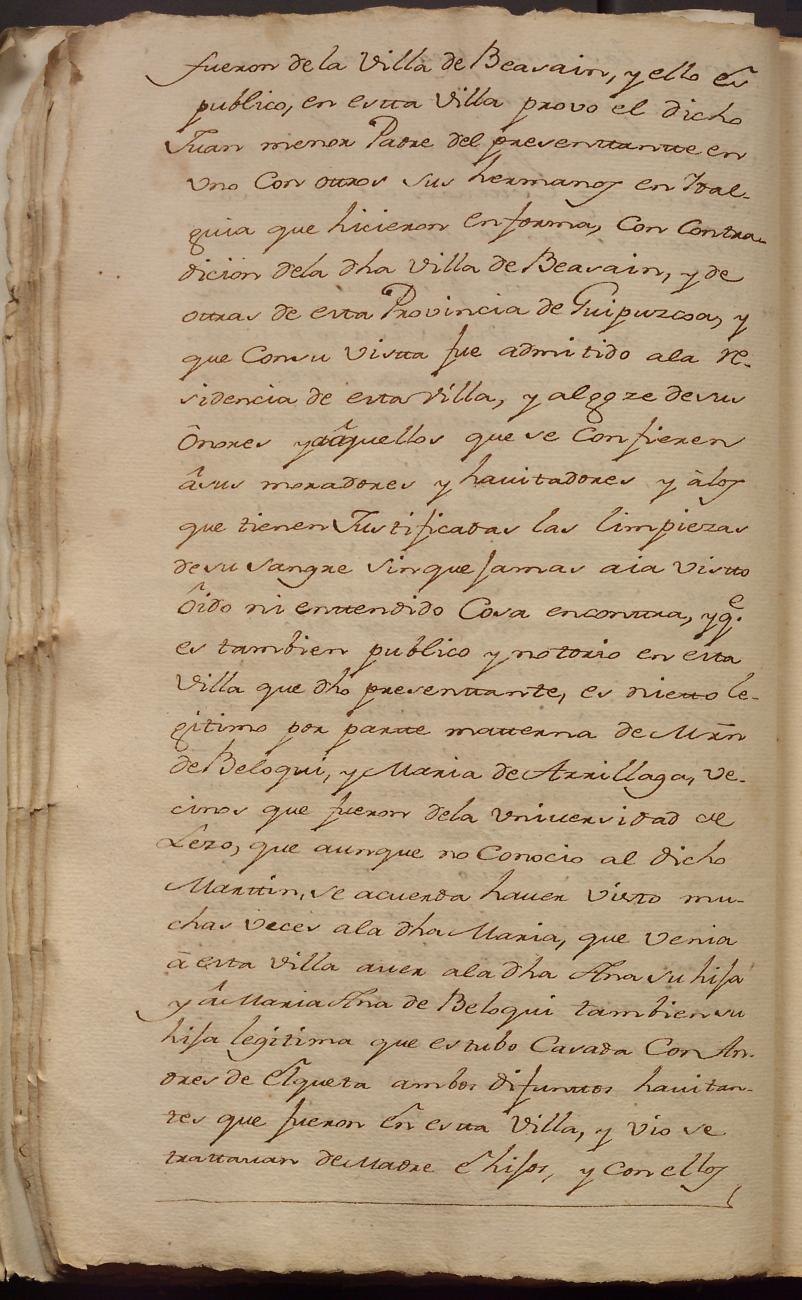 fueron de la Villa de Beasain, y ello es
publico, en estta Villa provo el dicho
Juan menor Padre del presenttantte en
uno Con ottros sus hermanos en Idal-
guia que hicieron en forma, Con Contra-
dicion dela dha Villa de Beasain, y de
ottras de esta Provincia de Guipuzcoa, y
que Consu Vistta fue admitido ala re-
sidencia de esta Villa, y al goze desus
ônores y aâquellos que se Confieren
âsus moradores y havitadores y àlos
que tienen Justificadas las limpiezas
desu sangre sinque Jamas aia Vistto
ôido ni enttendido Cosa encontra, y q.e
es tambien publico y notorio en esta
Villa que dho presenttante, es nietto le-
gitimo por partte matterna de Mrñ
de Beloqui, y Maria de Arrillaga, Ve-
cinos que fueron dela Vniversidad de
Lezo, que aunque no Conocio al dicho
Marttin, se acuerda haver visto mu-
chas Veces ala dha Maria, que Venia
â esta Villa aver ala dha Ana su hija
y â Maria Ana de Beloqui tambien su
hija legitima que estubo Casada Con An-
dres de Elqueta ambos difunttos havitan-
tes que fueron en estta Villa, y vio se
trattavan de Madre ê hijos, y Con ellos